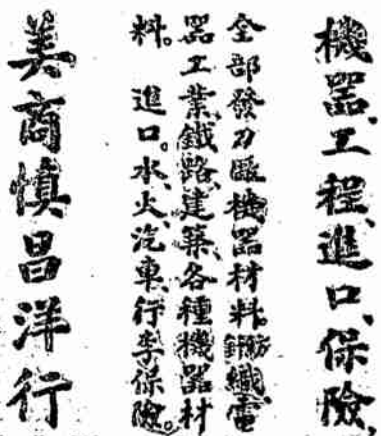 機器、工程、進口、保險、
全部發力機器材料。紡織、電
器工業、鐵路、建築、各種機器材
料。進口。水、火、汽車、行李保險。
美商慎昌洋行